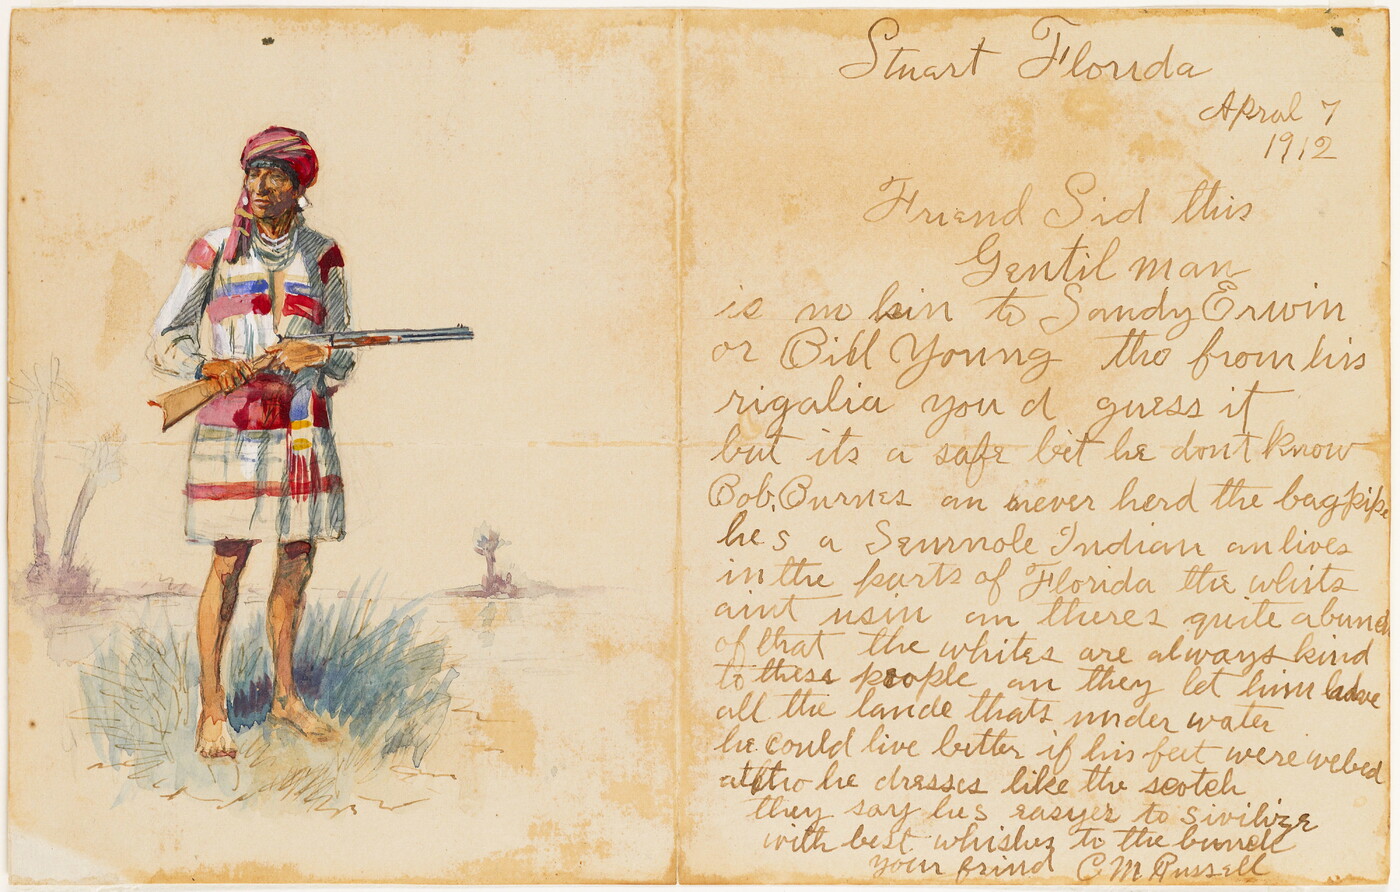 Stuart Florida
Apral 7
1912
Friend Sid this
Gentil man
is no kin to Sandy Erwin
or Bill Young tho from his
rigalia you d guess it
but its a safe bet he dont know
Bob. Burnes an never herd the bagpipe
he s a Semnole Indian an lives
in the parts of Florida the whits
aint usin an theres quite abunch
of that the whites are always kind
to these people an they let him have
all the lande thats under water
he could live better if his feet were webed
altho he dresses like the scotch
they say hes easyer to sivilize
with best whishes to the bunch
your frind C M Russell